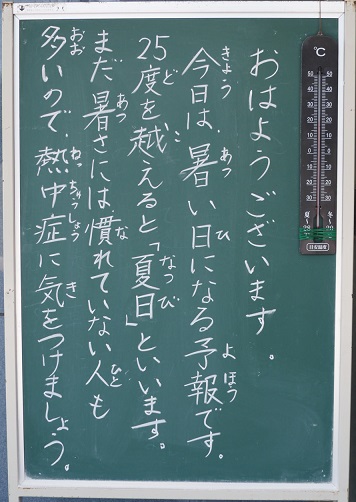 おはようございます。
今日は、暑い日になる予報です。
25度を越えると「夏日」といいます。
まだ暑さには慣れていない人も
多いので熱中症に気をつけましょう。
きょう
あつ
ひ
よほう
ど
こ
なつび
あつ
な
ひと
おお
ねっちゅうしょう
き
℃
50 50
40 40
30 30
20 20
10 10
0 0
10 10
20 20
30 30
夏
冬